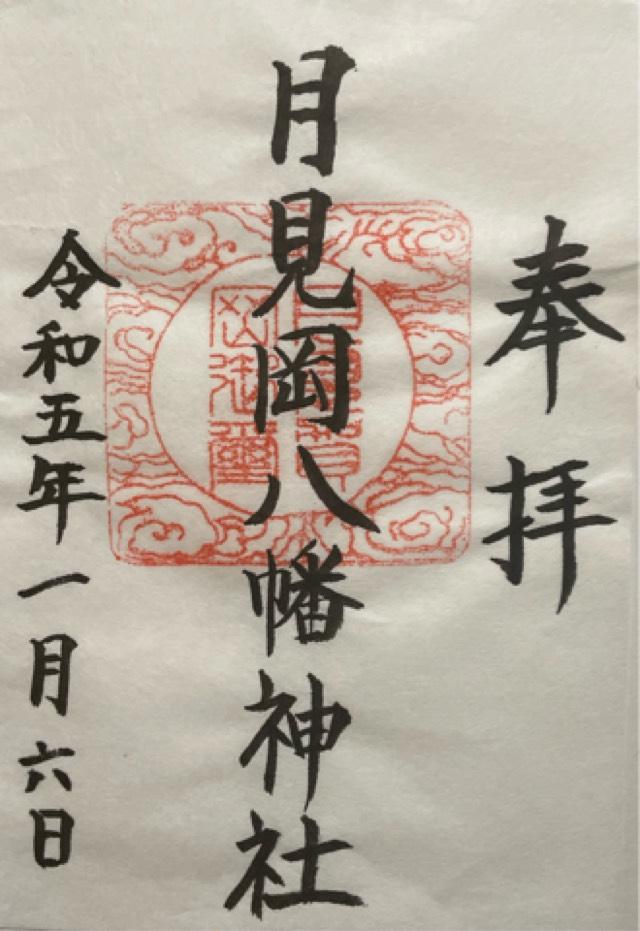 奉拝
月見岡八幡神社
令和五年一月六日